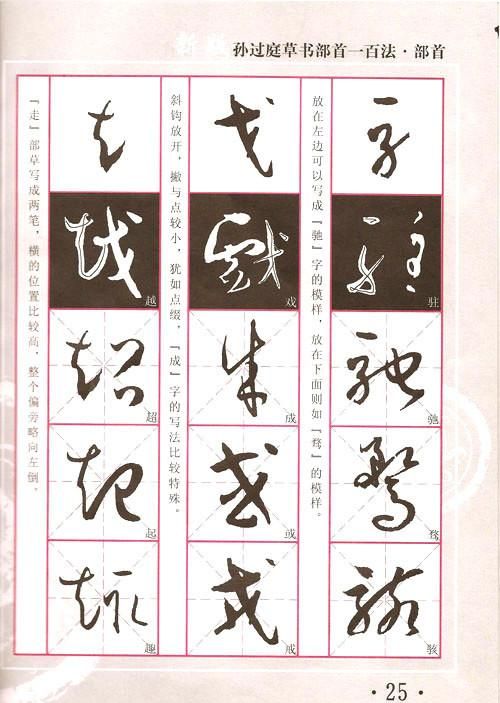 新版 孙过庭草书部首一百法·部首
放在左边可以写成『驰』字的模样，放在下面则如『骛』的模样。
驻
驰
骛
骇
斜钩放开，撇与点较小，犹如点缀，『成』字的写法比较特殊。
戏
成
或
戒
『走』部草写成两笔，横的位置比较高，整个偏旁略向左倒。
越
超
起
趣
·25·